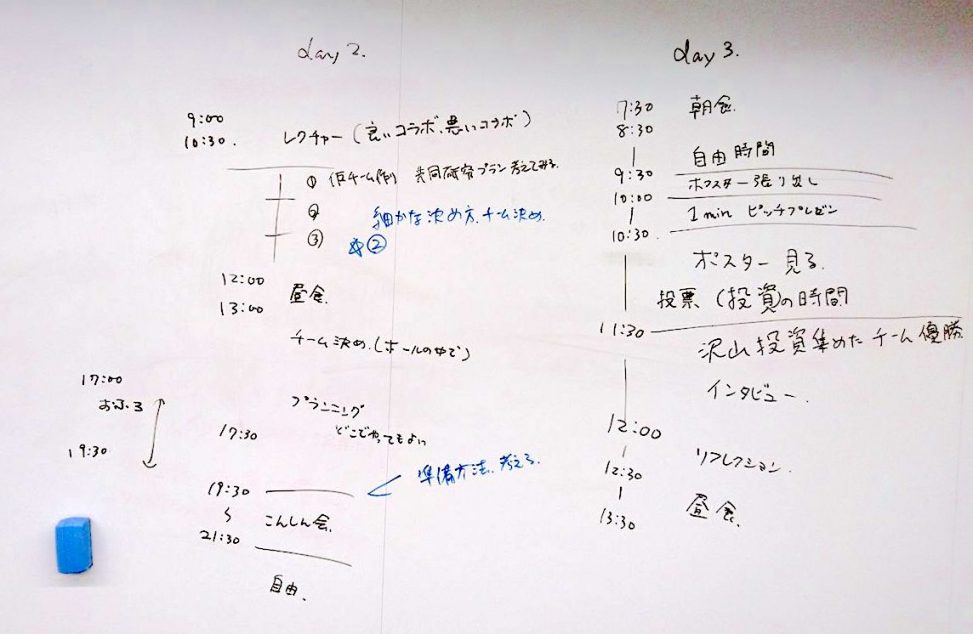 day 2.
9:00
10:30. レクチャー (良いコラボ、悪いコラボ)
① (仮チーム作り) 共同研究プラン考えてみる.
② 細かな決め方、チーム決め.
③ ②
12:00
昼食.
13:00
チーム決め. (ホールの中で)
17:00
おふろ
19:30
プランニング
どこでやってもよい
17:30
準備方法、考える.
19:30
こんしん会.
21:30
自由.
day 3.
7:30 朝食.
8:30
自由時間
9:30
ポスター張り出し
10:00
1 min ピッチプレゼン
10:30.
ポスター見る.
投票 (投資)の時間
11:30
沢山投資集めたチーム優勝
インタビュー.
12:00
リフレクション.
12:30
昼食.
13:30